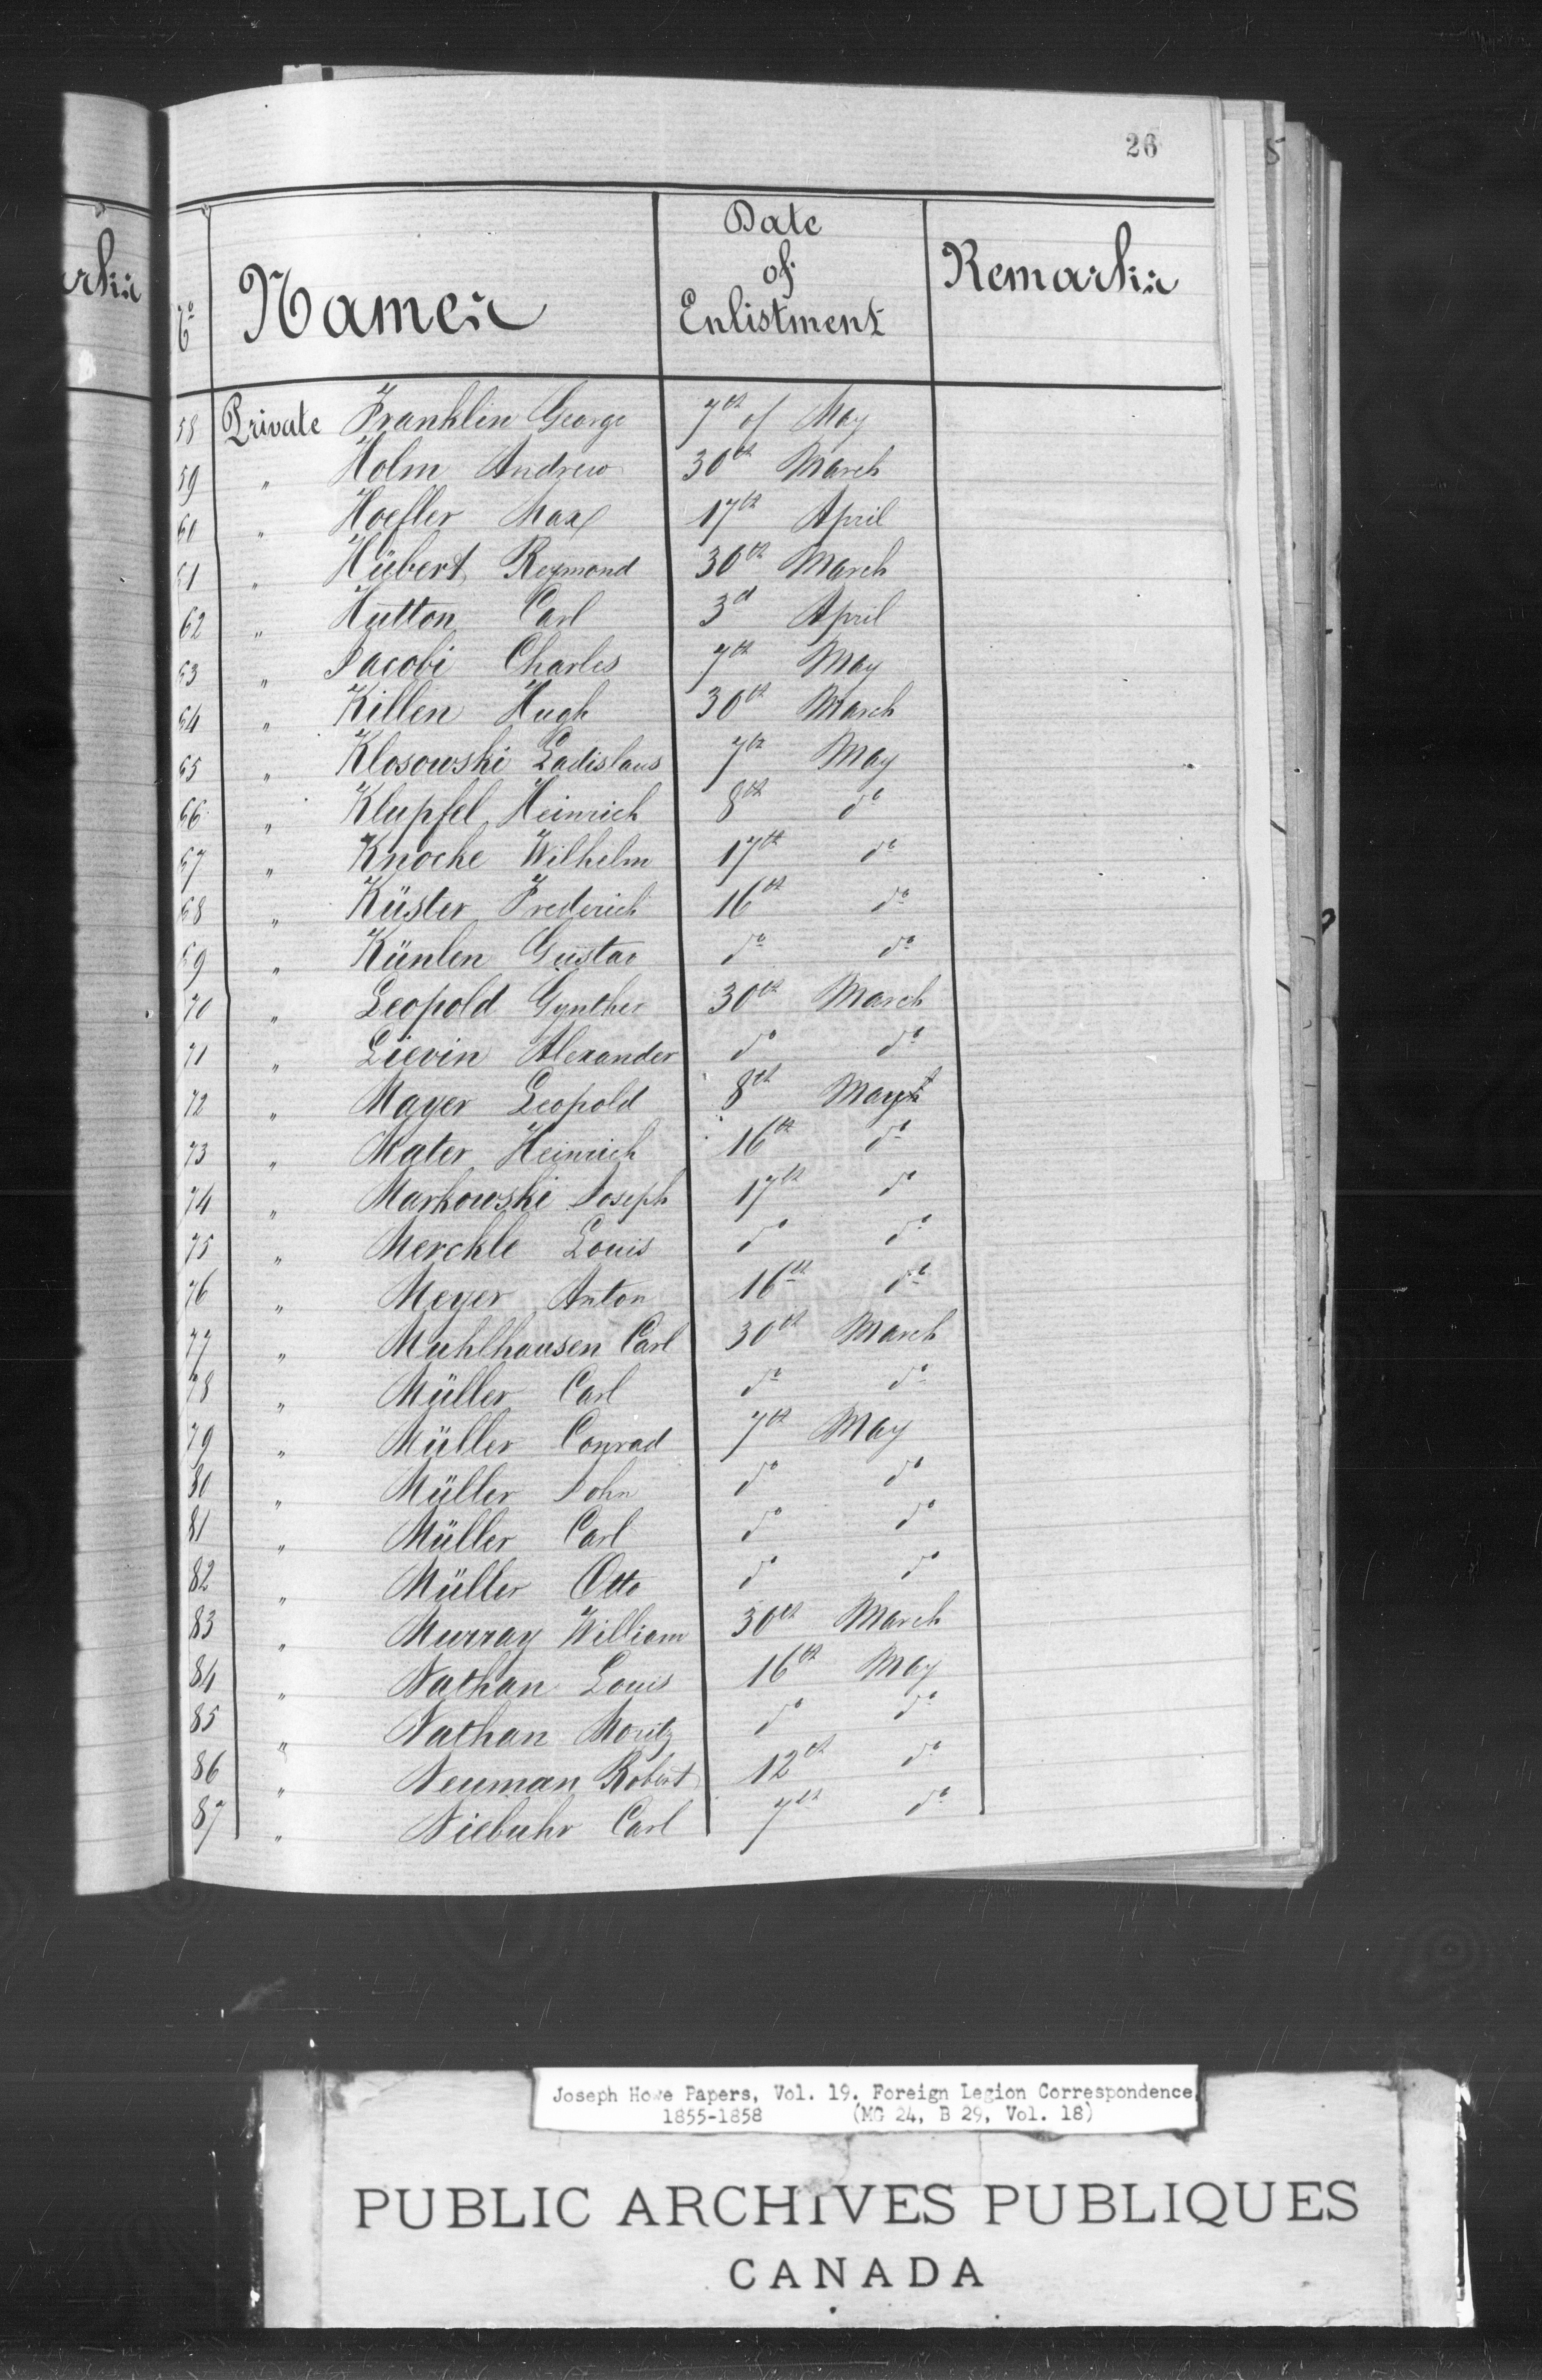 26
5
arks
No
Names
Date
of
Enlistment
Remarks
58 Private Franklin George 7th of May
59 " Holm Andrew 30th March
60 " Hoefler Max 17th April
61 " Hübert Reymond 30th March
62 " Hutton Carl 3d April
63 " Jacobi Charles 7th May
64 " Killen Hugh 30th March
65 " Klosowski Ladislaus 7th May
66 " Klupfel Heinrich 8th do
67 " Knocke Wilhelm 17th do
68 " Küster Frederich 16th do
69 " Künlen Gustav do do
70 " Leopold Gynther 30th March
71 " Lievin Alexander do do
72 " Mayer Leopold 8th May
73 " Mater Heinrich 16th do
74 " Markowski Joseph 17th do
75 " Merckle Louis do do
76 " Meyer Anton 16th do
77 " Muhlhausen Carl 30th March
78 " Müller Carl do do
79 " Müller Conrad 7th May
80 " Müller John do do
81 " Müller Carl do do
82 " Müller Otto do do
83 " Murray William 30th March
84 " Nathan Louis 16th May
85 " Nathan Moritz do do
86 " Neuman Robert 12th do
87 " Niebuhr Carl 7th do
Joseph Howe Papers, Vol. 19. Foreign Legion Correspondence,
1855-1858 (MG 24, B 29, Vol. 18)
PUBLIC ARCHIVES PUBLIQUES
CANADA